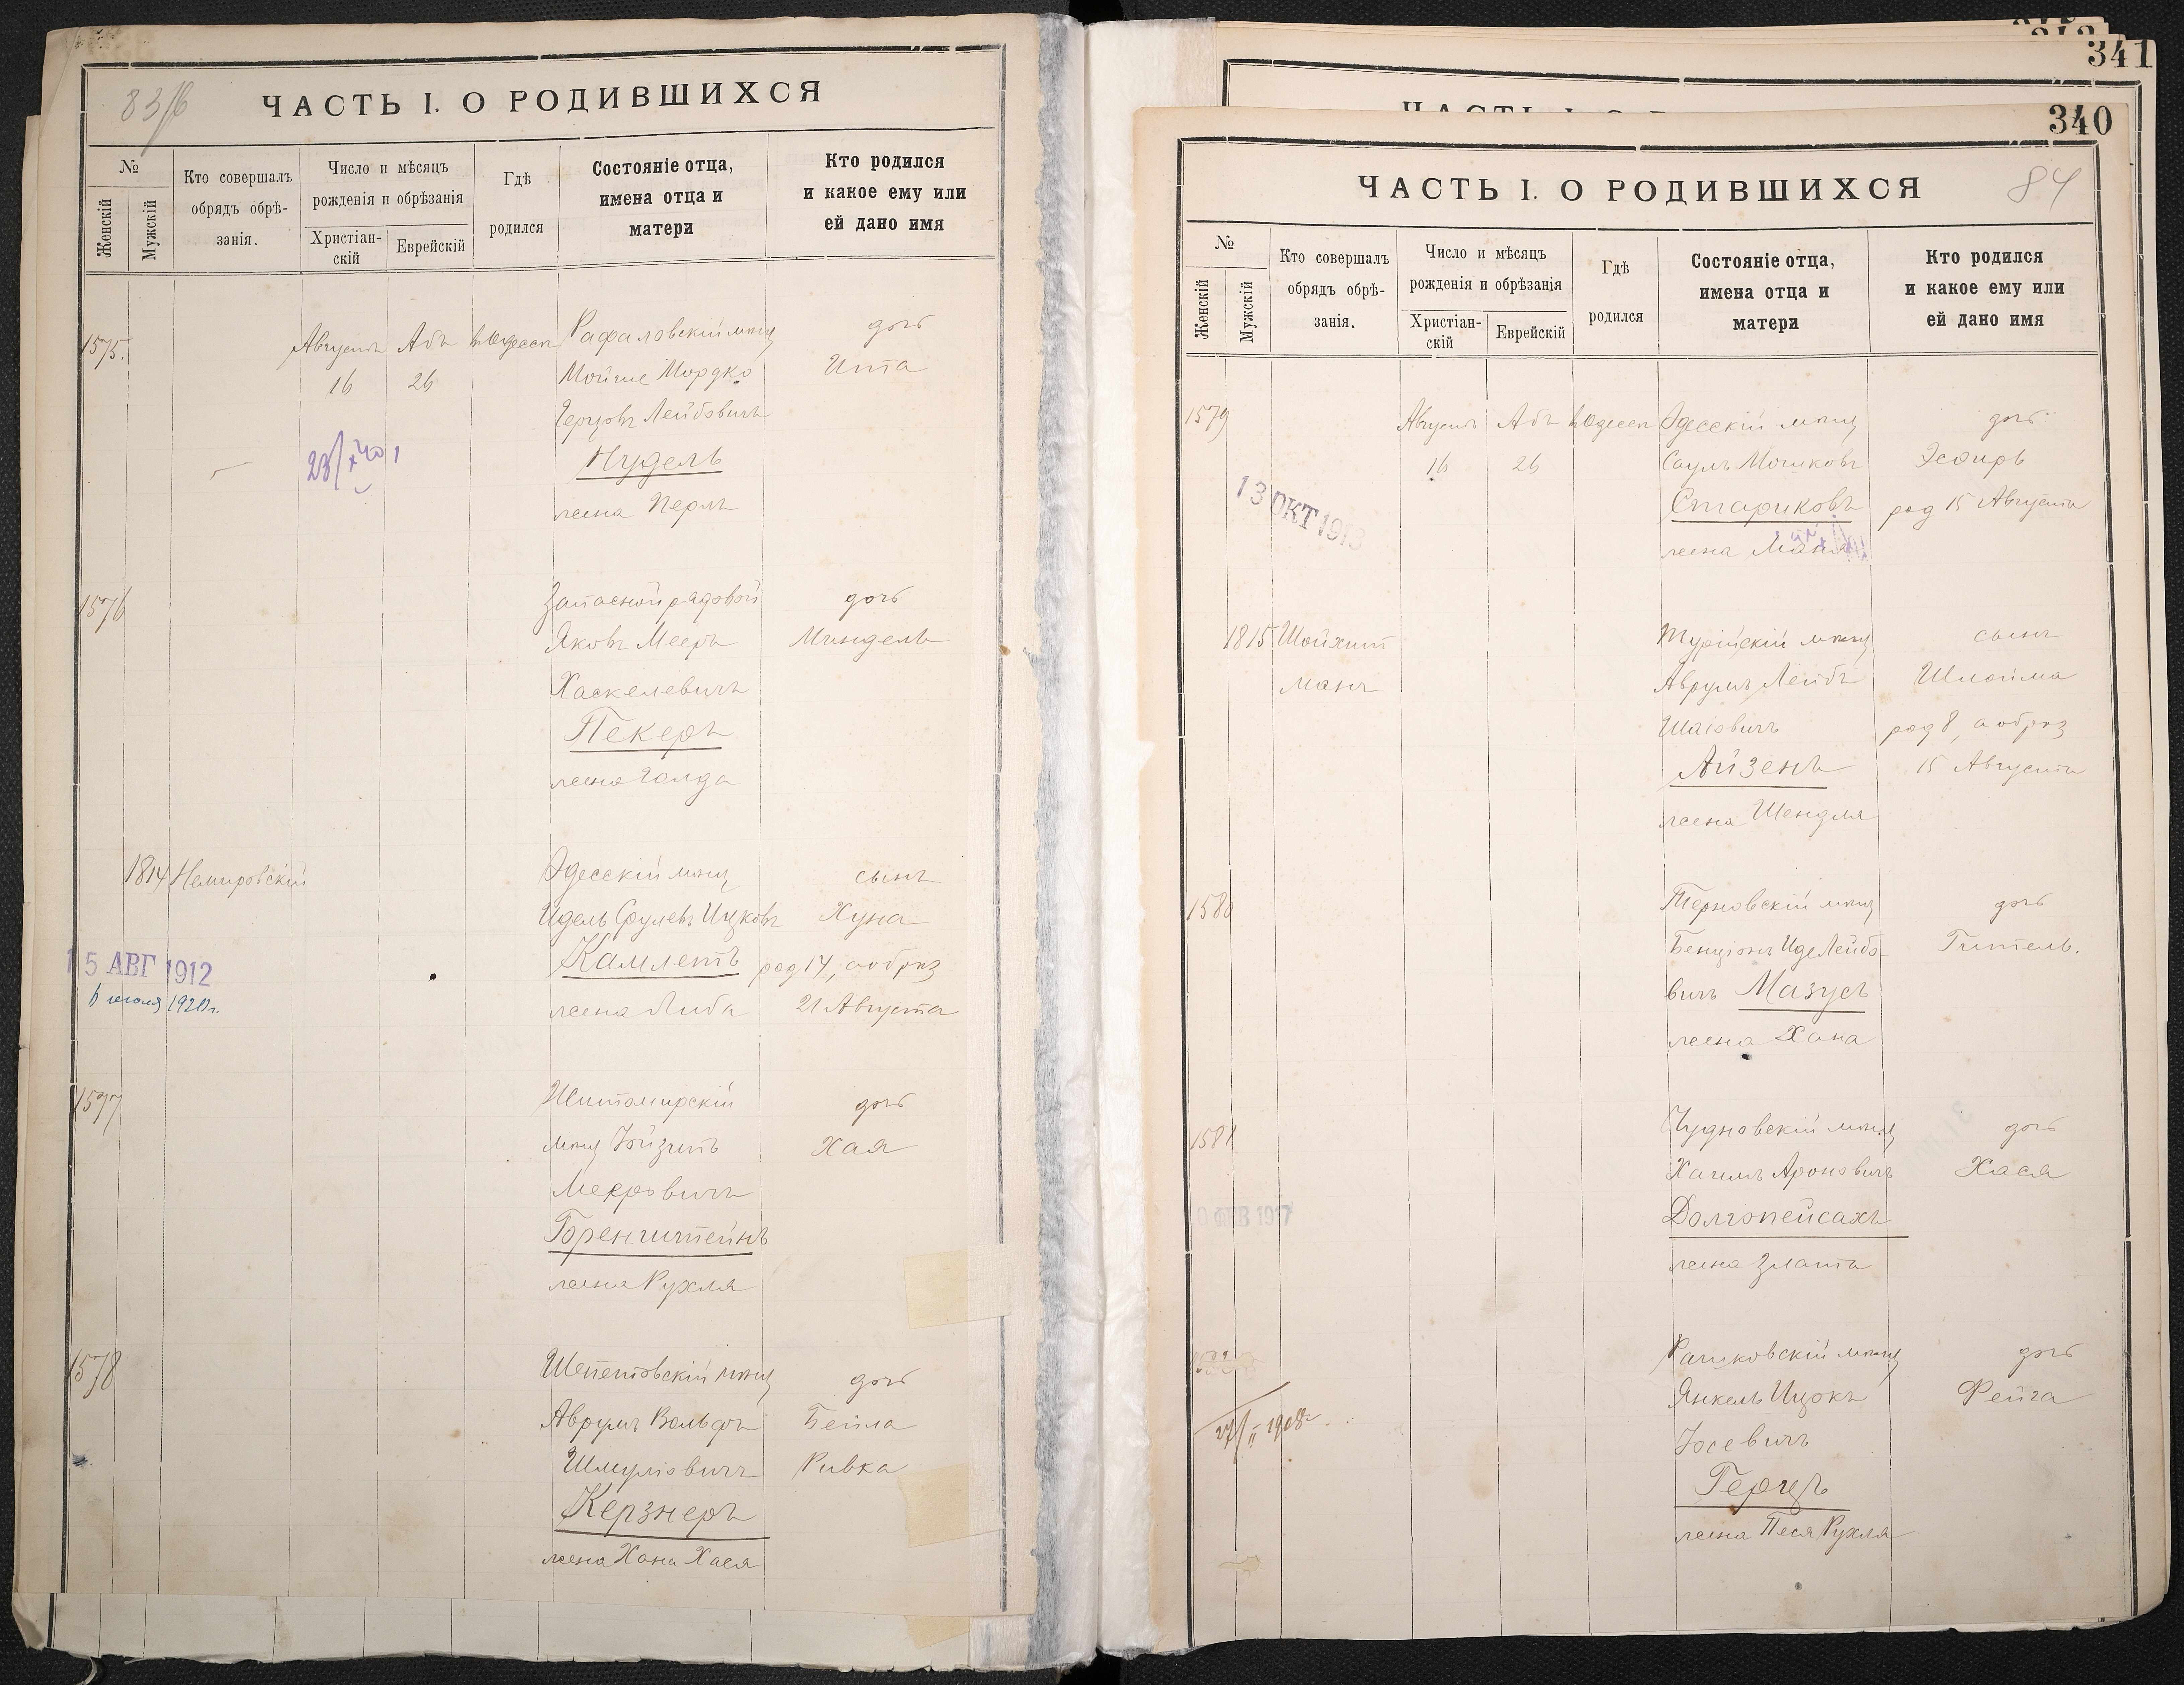 83/б
ЧАСТЬ I. О РОДИВШИХСЯ
№
Женскій
Мужскій
Кто совершалъ
обрядъ обрѣ-
занія.
Число и мѣсяцъ
рожденія и обрѣзанія
Христіан-
скій
Еврейскій
Гдѣ
родился
Состояніе отца,
имена отца и
матери
Кто родился
и какое ему или
ей дано имя
1575. Августъ Абъ в Одессѣ Рафаловскій мѣщ дочь
16 26 Мойше Мордко Ита
Герцовъ Лейбовичъ
Нудель
жена Перль
1576 Запасной рядовой дочь
Яковъ Мееръ Миндель
Хаскелевичъ
Пекеръ
жена Голда
1814 Немировскій Одесскій мѣщ сынъ
Идель Срулевъ Ицковъ Хуна
15 АВГ 1912 Камлетъ род 14, а обрѣз
6 июля 1920г. жена Либа 21 Августа
1577 Житомирскій дочь
мѣщ Хая
Мееровичъ
Горенштейнъ
жена Рухля
1578 Шепетовскій мѣщ дочь
Аврумъ Вольфъ Бейла
Шмуліовичъ Ривка
Керзнеръ
жена Хана Хася
341
340
ЧАСТЬ I. О РОДИВШИХСЯ
84
№
Женскій
Мужскій
Кто совершалъ
обрядъ обрѣ-
занія.
Число и мѣсяцъ
рожденія и обрѣзанія
Христіан-
скій
Еврейскій
Гдѣ
родился
Состояніе отца,
имена отца и
матери
Кто родился
и какое ему или
ей дано имя
1579 Августъ Абъ в Одессѣ Одесскій мѣщ дочь
16 26 Саулъ Мошковъ Эсфирь
13 ОКТ 1913 Стариковъ род 15 Августа
жена Маня
1815 Шойхит Турійскій мѣщ сынъ
манъ Аврумъ Лейбъ Шлойма
Шаіовичъ род 8, а обрѣз
Айзенъ 15 Августа
жена Шендля
1580 Терновскій мѣщ дочь
Бенціонъ Иде Лейбо- Гитель.
вичъ Мазусъ
жена Хана
1581 Чудновскій мѣщ дочь
Хаимъ Ароновичъ Хася
0 ФЕВ 1917 Долгопейсахъ
жена Злата
Рашковскій мѣщ дочь
Янкель Ицокъ Фейга
27/II 1908 Іосевичъ
Герцъ
жена Песя Рухля